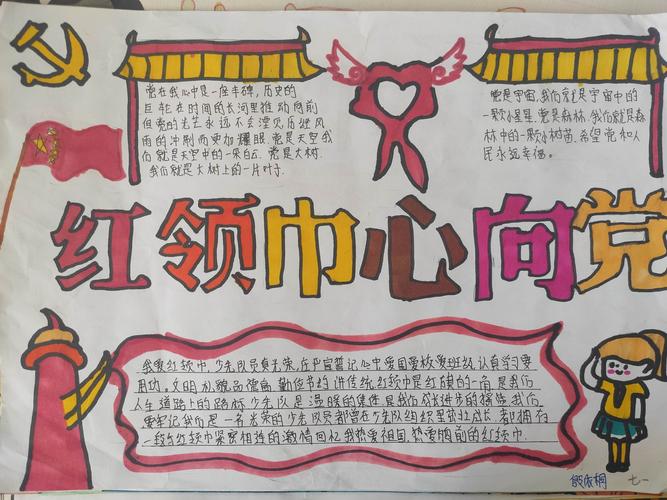 党在我心中是一座丰碑,历史的
巨轮在时间的长河里推动向前
但党的光芒永远不会漂灭历经风
雨的冲刷而更加耀眼。党是天空我
们就是天空中的一朵白云。党是大树.
我们就是大树上的一片叶子.
党是宇宙,我们就是宇宙中的
一颗小星星.党是森林,我们就是森
林中的一颗小树苗,希望党和人
民永远幸福。
红领巾心向党
我爱红领巾,少先队员真光荣,庄严宣誓记心中爱国爱校爱班级,认真学习要
用功,文明礼貌品德高,勤俭节约讲传统.红领巾是红旗的一角,是我们
人生道路上的路标,少先队是温暖的集体,是我们成长进步的摇篮,我们
要牢记我们是一名光荣的少先队员都曾在少先队组织里茁壮成长,都拥有
一段与红领巾紧密相连的激情回忆,我热爱祖国,热爱胸前的红领巾.
七一